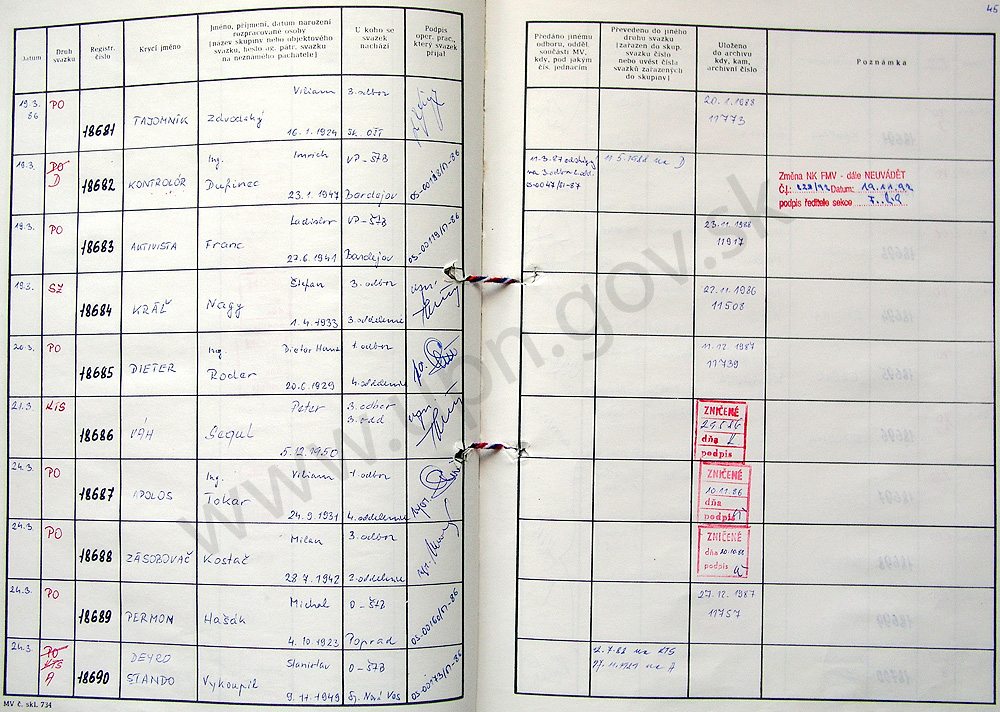 45
Datum
Druh svazku
Registr. číslo
Krycí jméno
Jméno, příjmení, datum narození
rozpracované osoby
[název skupiny nebo objektového
svazku, heslo ag. pátr. svazku
na neznámého pachatele]
U koho se
svazek
nachází
Podpis
oper. prac.,
který svazek
přijal
Předáno jinému
odboru, odděl.
součásti MV,
kdy, pod jakým
čís. jednacím
Převedeno do jiného
druhu svazku
[zařazen do skup.
svazku číslo
nebo uvést čísla
svazků zařazených
do skupiny]
Uloženo
do archivu
kdy, kam,
archivní číslo
Poznámka
19.3. 86 PO 18681 TAJOMNÍK Viliam Zdvodský 16.1.1924 3. odbor Šk. OŠI
20.1.1988
11773
19.3. PO D 18682 KONTROLÓR Ing. Imrich Dupinec 23.1.1947 VP-ŠtB Bardejov
11.5.1988 na D
Změna NK FMV - dále NEUVÁDĚT
Č.j.: Datum: 19.11.92
podpis ředitele sekce
19.3. PO 18683 AKTIVISTA Ladislav Franc 27.6.1941 VP-ŠtB Bardejov OS-00119/VP-86
23.11.1988
11917
19.3. SZ 18684 KRÁĽ Štefan Nagy 1.4.1933 3. odbor 3. oddelenie
27.11.1986
11508
20.3. PO 18685 DIETER Ing. Dieter Hans Roder 20.6.1929 1. odbor 4. oddelenie
11.12.1987
11739
21.3. KTS 18686 VÁH Peter Segul 5.12.1950 3. odbor 3. odd
ZNIČENÉ
dňa
podpis
24.3. PO 18687 APOLOS Ing. Viliam Tokar 24.9.1931 1. odbor 4. oddelenie
ZNIČENÉ
10.11.86
dňa
podpis
24.3. PO 18688 ZÁSOBOVAČ Milan Kostač 28.7.1942 3. odbor 2. oddelenie
ZNIČENÉ
dňa
podpis
24.3. PO 18689 PERMON Michal Hašák 4.10.1923 O-ŠtB Poprad OS-00160/VP-86
27.12.1987
11757
24.3. PO KTS A 18690 DEYRO STANDO Stanislav Vykoupil 9.11.1949 O-ŠtB Sp. Nová Ves OS-00173/VP-86
12.7.88 na KTS
MV č. skl. 734
www.upn.gov.sk